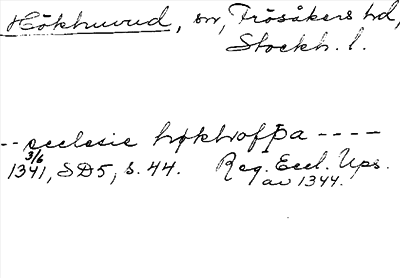 Hökhuvud, sn, Frösåkers hd,
Stockh. l.
-- ecclesie høkhoffþa ----
3/6
1341, SD5, s. 44. Reg. Eccl. Ups.
av 1344.